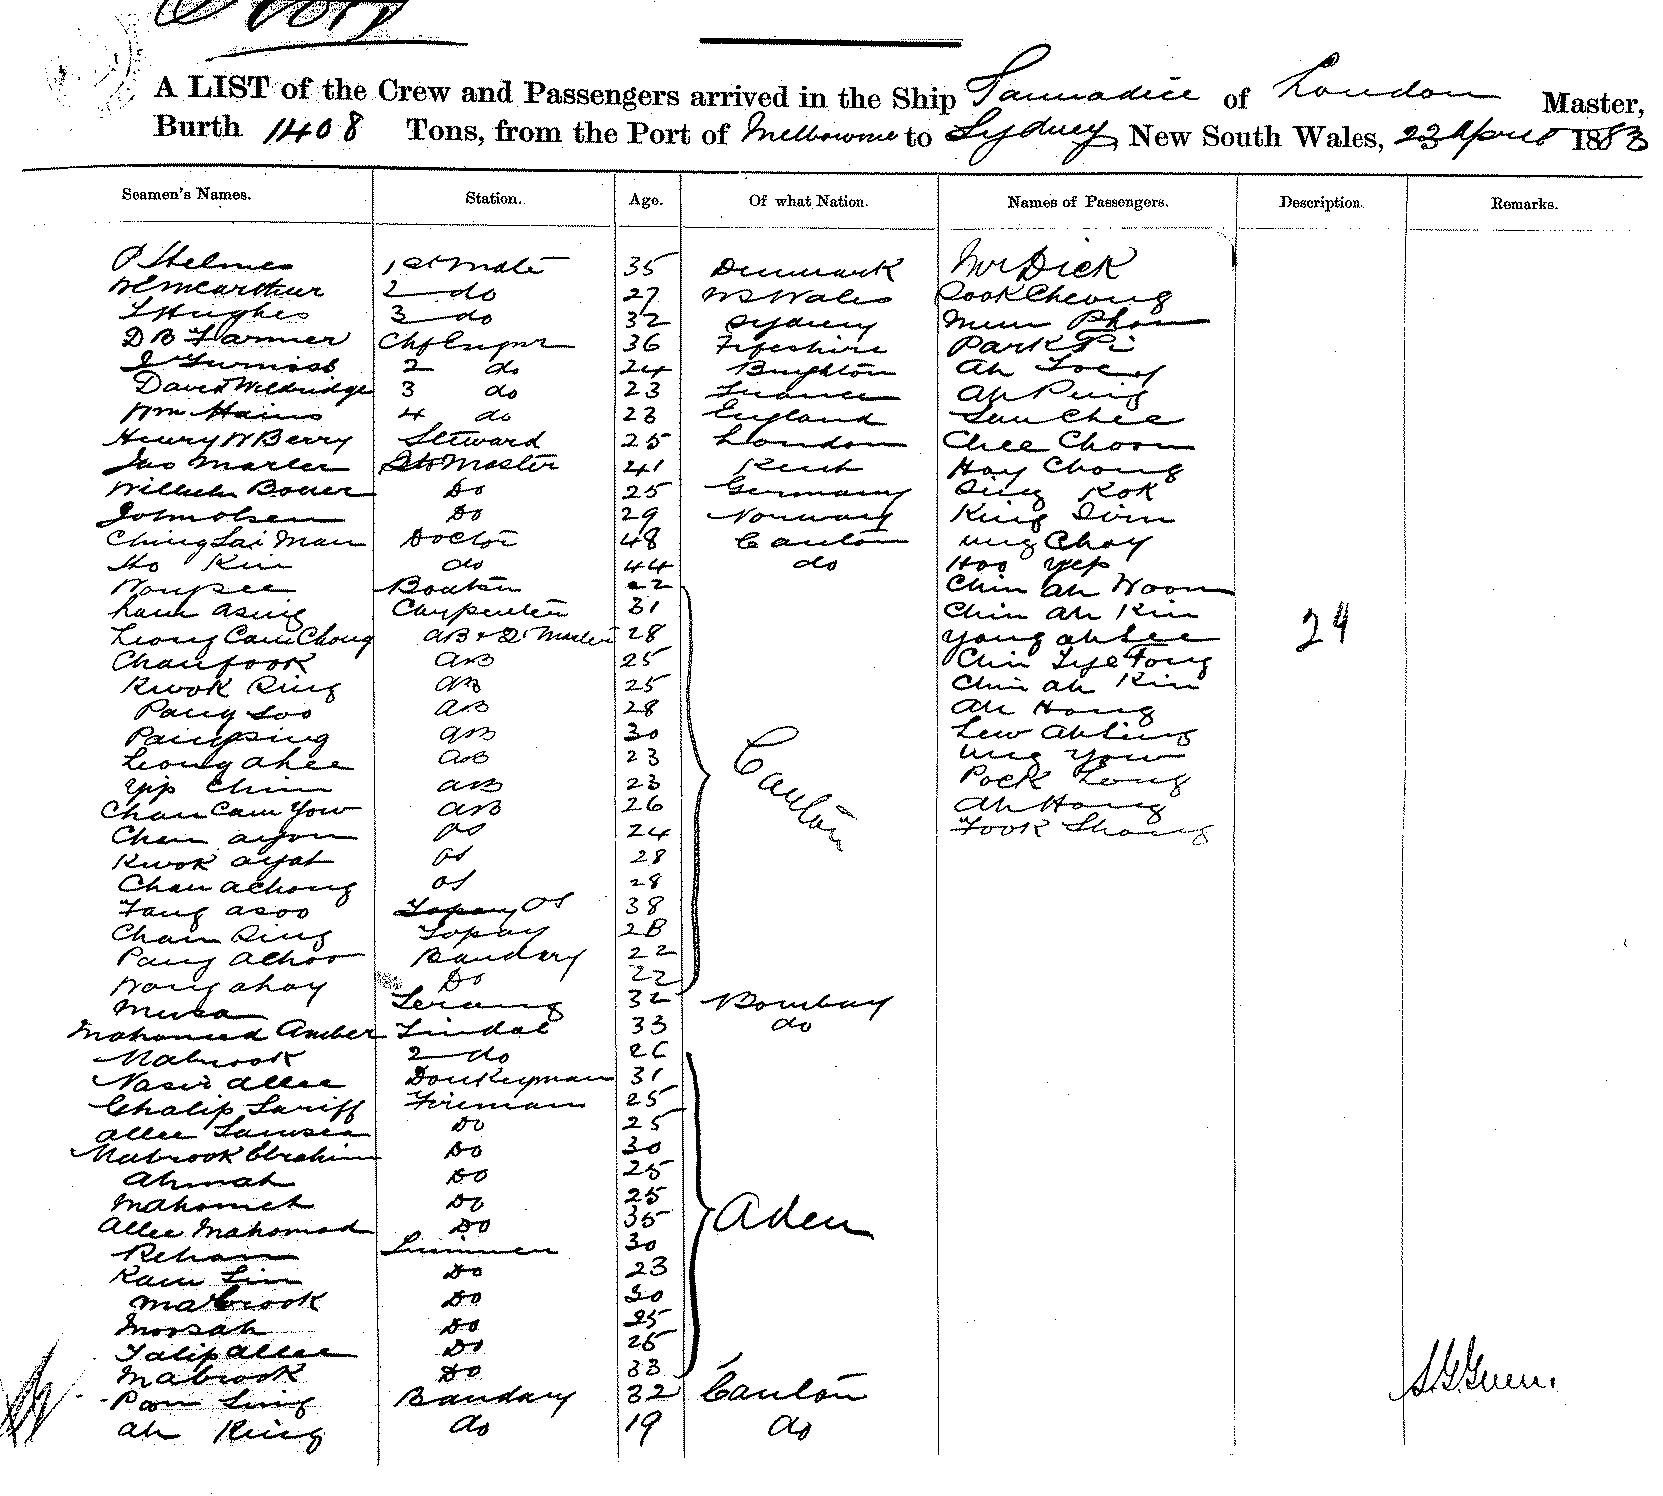 A LIST of the Crew and Passengers arrived in the Ship Tannadice of London Master,
Burth 1408 Tons, from the Port of Melbourne to Sydney, New South Wales, 23 April 1883
Seamen's Names. Station. Age. Of what Nation. Names of Passengers. Description. Remarks.
P Helmes 1st Mate 35 Denmark Mr Dick
McArthur 2 do 27 NS Wales Sook Cheong
T Hughes 3 do 32 Sydney Mum Phan
D B Farmer Chf Engnr 36 Fifeshire Park Pi
J Furniss 2 do 24 Brighton Ah Toey
David Weldridge 3 do 23 France Ah Ping
Wm Hains 4 do 23 England San Chee
Henry W Berry Steward 25 London Chee Choon
Jas Marler Qtr Master 41 Kent Hoy Chong
Wilhelm Bower Do 25 Germany Sing Kok
John Olsen Do 29 Norway King Sim
Ching Sai Man Doctor 48 Canton Ung Choy
Ho Kin do 44 do Hoo Yep
Boatsn Chin Ah Woon
Lam Asing Carpenter 31 Chin Ah Kin
Leong Cam Chong AB & Qr Master 28 Yong Ah Lee 24
Chanfook AB 25 Chin Tye Fong
Kwok Sing AB 25 Chin Ah Kin
Pang Soo AB 28 Ah Hong
Pang Sing AB 30 Lew Ah Ling
Leong Ahee AB 23 Canton Ung Yow
Yip Chim AB 23 Pock Long
Chan Cam Yow AB 26 Ah Hong
Chan Ayon OS 24 Fook Shang
Kwok Ayat OS 28
Chan Achong OS 28
Fang Asoo Topay OS 38
Chan Sing Topay 28
Pang Achoo Bandary 22
Wong Ahoy Do 22
Musa Serang 32 Bombay
Mahomed Amber Tindal 33 do
Mabrook 2 do 26
Nasir Allee Donkeyman 31
Ghalip Sariff Fireman 25
Allee Do 25
Mabrook Ebrahim Do 30
Ahmah Do 25
Mahomet Do 25
Allee Mahomed Do 35 Aden
Rehan 30
Kam Sin Do 23
Mabrook Do 30
Moosah Do 25
Talip Allee Do 25
Mabrook Do 33
Poon Sing Bandary 32 Canton
Ah King do 19 do